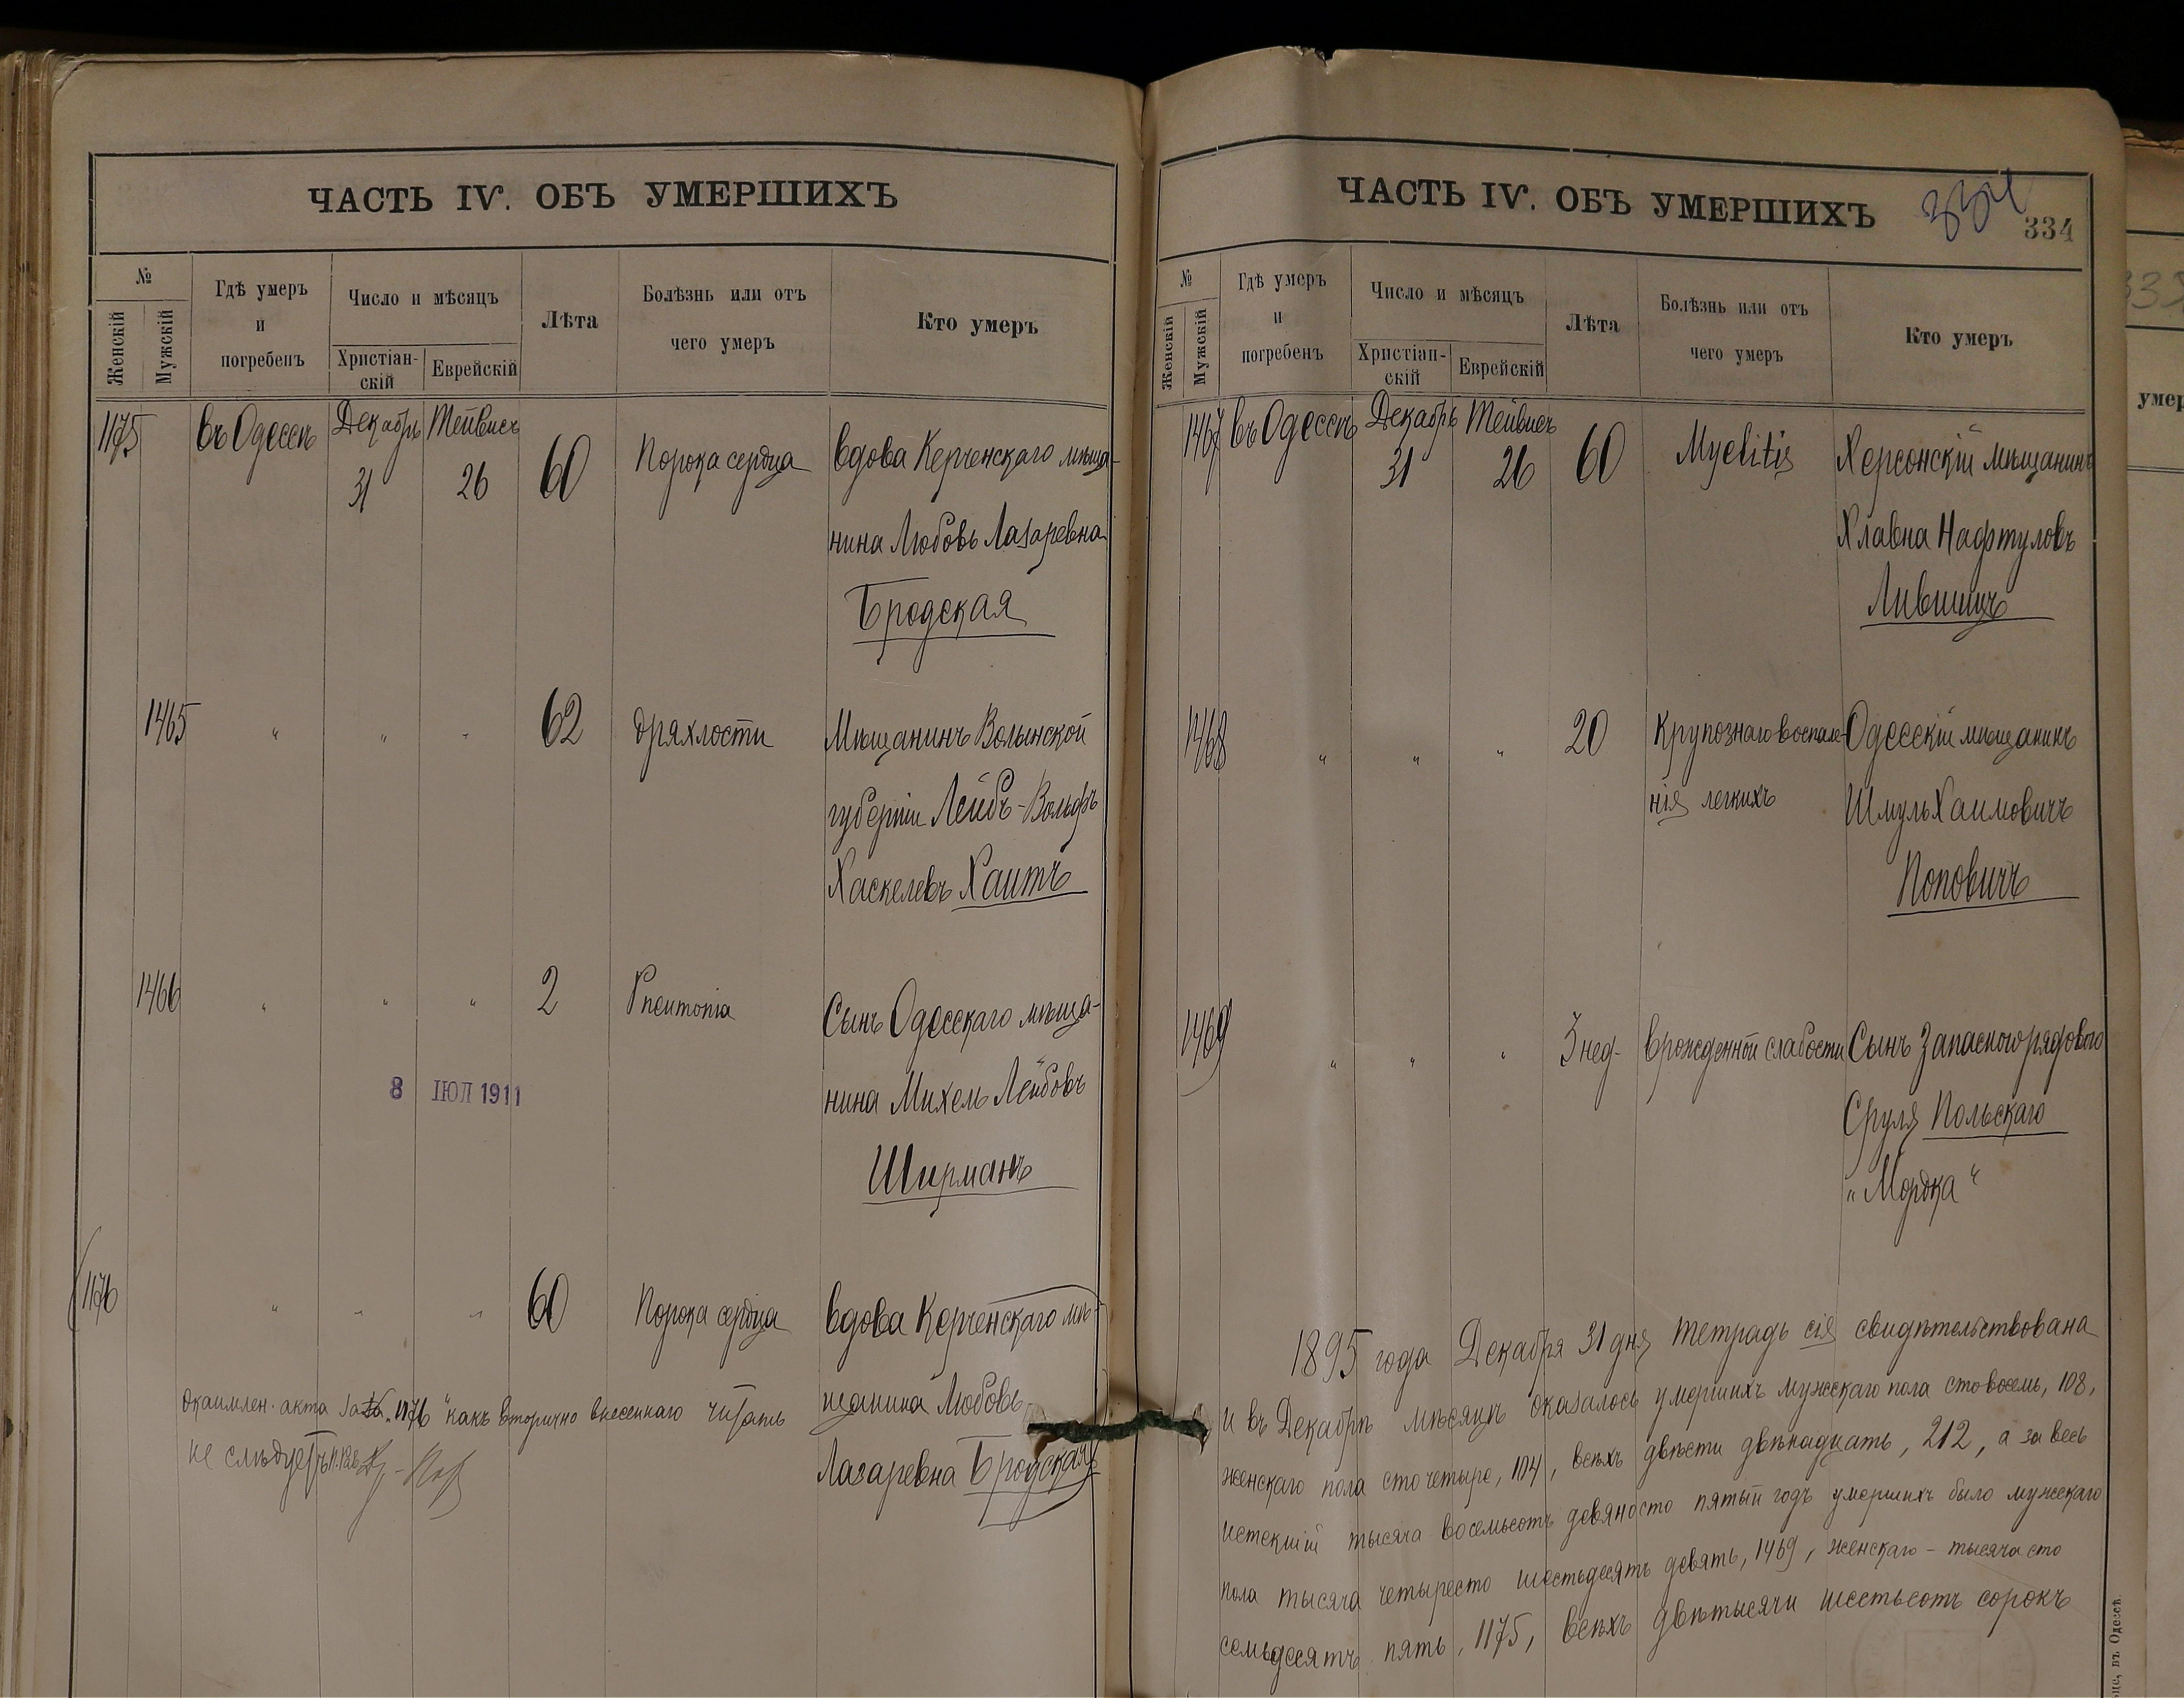 ЧАСТЬ IV. ОБЪ УМЕРШИХЪ
№
Женскій
Мужскій
Гдѣ умеръ
и
погребенъ
Число и мѣсяцъ
Христіан-
скій
Еврейскій
Лѣта
Болѣзнь или отъ
чего умеръ
Кто умеръ
1175 въ Одессѣ Декабрь 31 Тейвисъ 26 60 Порока сердца вдова Керченскаго мѣща-
нина Любовь Лазаревна
Бродская
1465 " " " 62 дряхлости Мѣщанинъ Волынской
губерніи Лейбъ-Вольфъ
Хаскелевъ Хаитъ
1466 " " " 2 Pneumonia Сынъ Одесскаго мѣща-
нина Михель Лейбовъ
8 ІЮЛ 1911
Ширманъ
1176 " " " 60 Порока сердца вдова Керченскаго мѣ-
щанина Любовь
Лазаревна Бродская
акта за № "1176" какъ вторично внесеннаго читать
не слѣдуетъ
ЧАСТЬ IV. ОБЪ УМЕРШИХЪ
334
334
№
Женскій
Мужскій
Гдѣ умеръ
и
погребенъ
Число и мѣсяцъ
Христіан-
скій
Еврейскій
Лѣта
Болѣзнь или отъ
чего умеръ
Кто умеръ
1467 въ Одессѣ Декабрь 31 Тейвисъ 26 60 Myelitis Херсонскій мѣщанинъ
Хлавна Нафтуловъ
Лившицъ
1468 " " " 20 Крупознаго воспале- Одесскій мѣщанинъ
нія легкихъ Шмуль Хаимовичъ
Поповичъ
1469 " " " 3 нед. врожденной слабости Сынъ Запасного рядового
Сруля Польскаго
"Мордка"
1895 года Декабря 31 дня тетрадь сія свидѣтельствована
и въ Декабрѣ мѣсяцѣ оказалось умершихъ мужскаго пола сто восемь, 108,
женскаго пола сто четыре, 104, всѣхъ двѣсти двѣнадцать, 212, а за весь
истекшій тысяча восемьсотъ девяносто пятый годъ умершихъ было мужскаго
пола тысяча четыресто шестьдесятъ девять, 1469, женскаго - тысяча сто
семьдесятъ пять, 1175, всѣхъ двѣ тысячи шестьсотъ сорокъ
въ Одессѣ.
умер